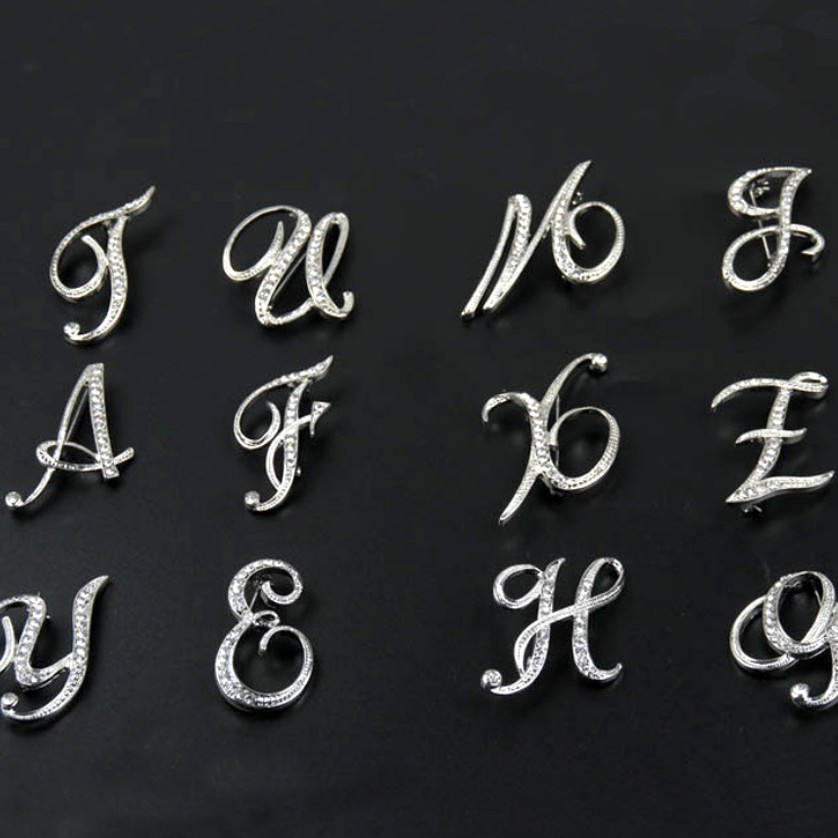 T U J
A F X Z
Y E H